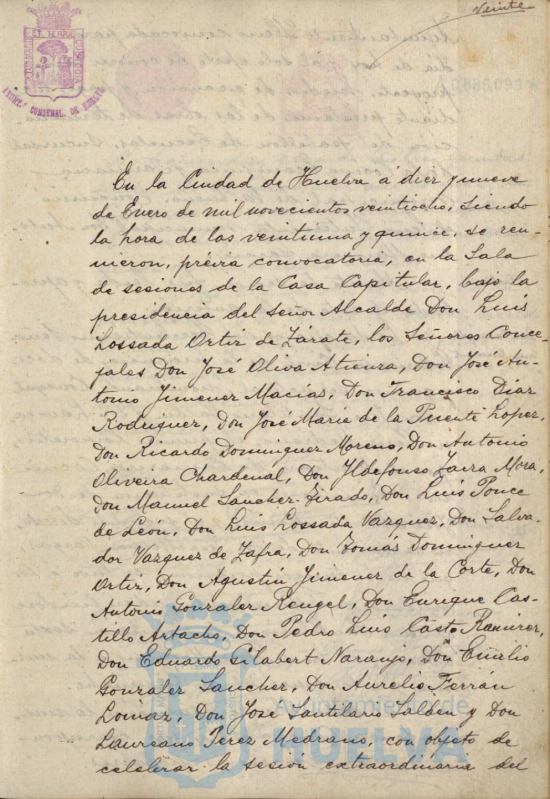 veinte
AYUNT. CONSTNAL. DE HUELVA
En la Ciudad de Huelva á diez y nueve
de Enero de mil novecientos veintiocho, siendo
la hora de las veintiuna y quince, se reu-
nieron, prévia convocatoria, en la Sala
de sesiones de la Casa Capitular, bajo la
presidencia del Señor Alcalde Don Luis
Lossada Ortiz de Zárate, los Señores Conce-
jales Don José Oliva Atienza, Don José An-
tonio Jimenez Macías, Don Francisco Diaz
Rodriguez, Don José Maria de la Puente Lopez,
Don Ricardo Dominguez Moreno, Don Antonio
Oliveira Chardenal, Don Ildefonso Zarra Mora,
Don Manuel Sanchez-Tirado, Don Luis Ponce
de León, Don Luis Lossada Vazquez, Don Salva-
dor Vazquez de Zafra, Don Tomás Dominguez
Ortiz, Don Agustín Jimenez de la Corte, Don
Antonio Gonzalez Rengel, Don Enrique Cas-
tillo Artacho, Don Pedro Luis Casto Ramirez,
Don Eduardo Gilabert Naranjo, Don Emilio
Gonzalez Sanchez, Don Aurelio Ferrán
Lomaz, Don José Santilario Saldén y Don
Laureano Perez Medrano, con objeto de
celebrar la sesión extraordinaria del
Ayuntamiento de
HUELVA